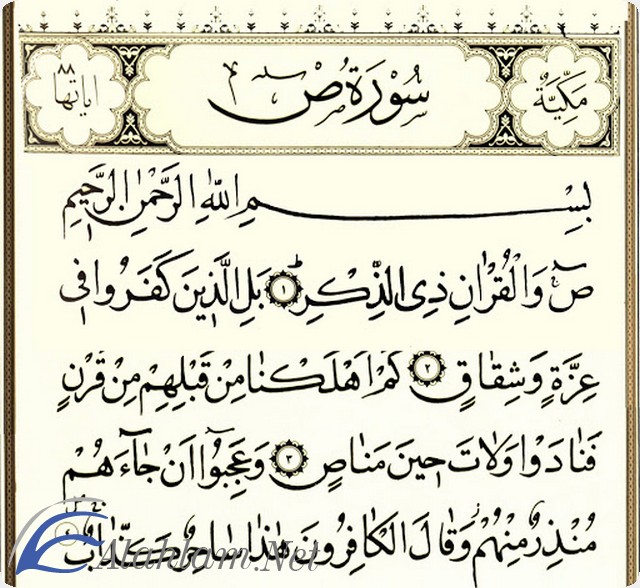 مكية
سورة ص
اياتها ٨٨
بِسْمِ اللّٰهِ الرَّحْمٰنِ الرَّحٖيمِ
صٓ وَالْقُرْاٰنِ ذِي الذِّكْرِ ١ بَلِ الَّذٖينَ كَفَرُوا فٖي
عِزَّةٍ وَشِقَاقٍ ٢ كَمْ اَهْلَكْنَا مِنْ قَبْلِهِمْ مِنْ قَرْنٍ
فَنَادَوْا وَلَاتَ حٖينَ مَنَاصٍ ٣ وَعَجِبُٓوا اَنْ جَٓاءَهُمْ
مُنْذِرٌ مِنْهُمْ وَقَالَ الْكَافِرُونَ هٰذَا سَاحِرٌ كَذَّابٌ
Alahlam.Net